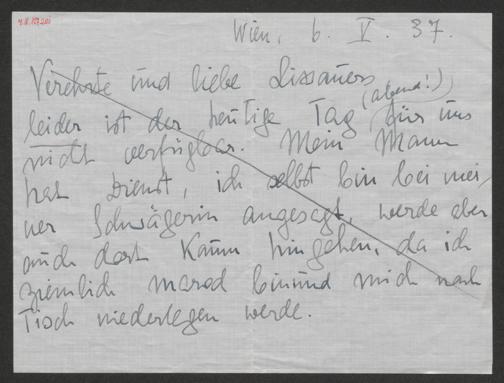 Wien, 6. V. 37.
Verehrte und liebe Lissauers
leider ist der heutige Tag (abend!) für uns
nicht verfügbar. Mein Mann
hat Dienst, ich selbst bin bei mei-
ner Schwägerin angesagt, werde aber
auch dort kaum hingehen, da ich
ziemlich marod bin und mich nach
Tisch niederlegen werde.